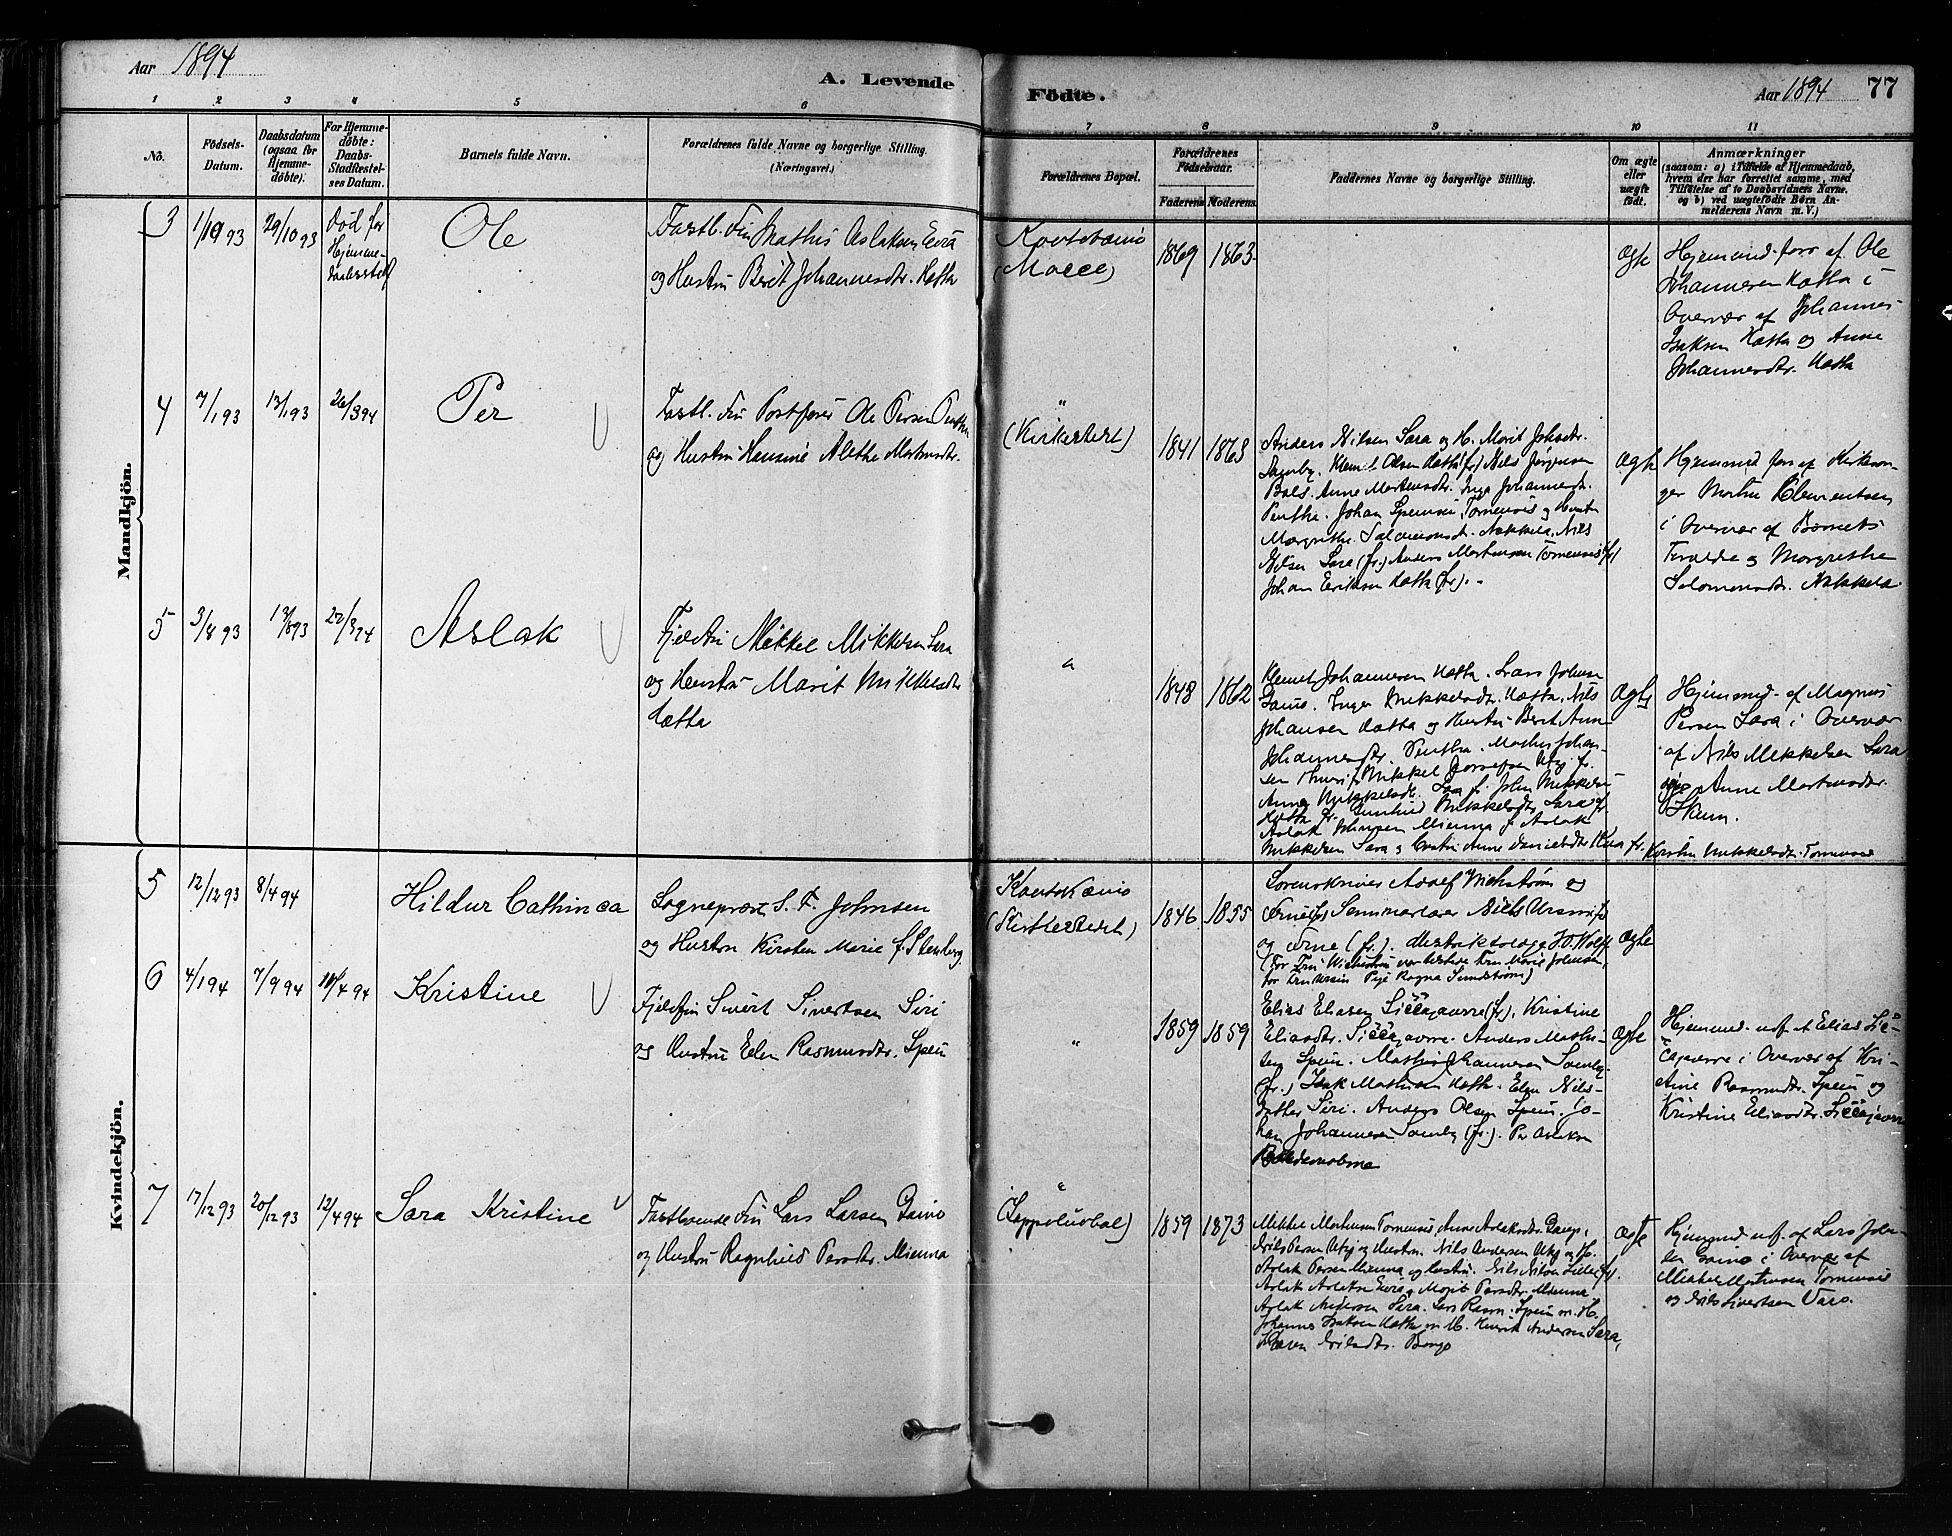 Aar 1894
A. Levende
Födte.
Aar 1894 77
1 2 3 4 5 6 7 8 9 10 11
No.
Födsels-
Datum.
Daabsdatum
(ogsaa for
Hjemme-
döbte).
For Hjemme-
döbte:
Daabs-
Stadfæstel-
ses Datum.
Barnets fulde Navn.
Forældrenes fulde Navne og borgerlige Stilling.
(Næringsvei.)
Forældrenes Bopæl.
Forældrenes
Födselsaar.
Faderens Moderens
Faddernes Navne og borgerlige Stilling.
Om ægte
eller
uægte
födt.
Anmærkninger
(saasom: a) i Tilfælde af Hjemmedaab,
hvem der har forrettet samme, med
Tilföielse af to Daabsvidners Navne.
og b) ved uægtefödte Börn An-
melderens Navn m. V.)
Mandkjön.
3 1/10 93 29/10 93 Död før
Hjemme-
daabsstadf
Ole
Fastb. Fin Mathis Aslaksen Eira
og Hustru Berit Johannesdtr. Hætta
Koutokæino
1869 1863
ægte
Hjemmed. forr. af Ole
Johannesen Hætta i
Overvær af Johannes
Isaksen Hætta og Anne
Johannesdtr. Hætta
4 7/1 93 13/1 93 26/3 94
Per
Fastb. Fin Postfører Ole Persen
og Hustru Hansine Alethe Mortensdtr.
"
(Kirkestedet)
1841 1863
Anders Nilsen Sara og H. Marit Johsdtr.
Somby. Klemet Olsen Hætta (fr.) Nils Jørgensen
Bals. Anne Mortensdtr. Inga Johannesdt.
Johan Tornensis og Hustru
Margrethe Salomonsdt. Nækkela, Nils
Nilsen Sara (fr.) Anders Mortensen Tornensis (fr)
Johan Eriksen Hætta (fr.).
ægte
Hjemmed. forr. af Kirkesan-
ger Martin Clementsen
i Overvær af Barnets
Forældre og Margrethe
Salomonsdt. Nækkela.
5 3/8 93 13/8 93 22/3 94
Aslak
Fjeldfin Mikkel Mikkelsen Sara
og Hustru Marit Mikkelsdtr
Hætta
"
1848 1862
Klemet Johannesen Hætta. Lars Johnsen
Gaino. Inger Mikkelsdt. Hætta, Nils
Johansen Hætta og Hustru Berit Anne
Johannesdtr. Mathis Johan-
sen Mikkel Josefsen Utsi fr.
Anne Mikkelsdt. Sara fr. John Mikkelsen
Hætta fr. Mikkelsdt. Sara fr.
Aslak Johnsen Mienna fr. Aslak
Mikkelsen Sara og Hustru Anne Danielsdtr fr. Kirsten Mikkelsdt. Tornensis
ægte
Hjemmed. af Magnus
Persen Sara i Overvær
af Nils Mikkelsen Sara
og Anne Mortensdtr.
Skum.
Kvindekjön.
5 12/12 93 8/4 94
Hildur Cathinca
Sogneprest S. F. Johnsen
og Hustru Kirsten Marie f. Stenberg
Koutokæino
(Kirkestedet)
1846 1855
Sorenskriver Adolf Wickstrøm og
Frue (fr) Seminarlærer Niels Ursin (fr)
og Frue (fr.). Distriktslæge
(For Fru Wickstrøm var tilstede Frk. Marie Johnsen,
for Fru Ursin Pige Ragna Sundstrøm)
ægte
6 4/1 94 7/9 94 10/4 94
Kristine
Fjeldfin Sivert Sivertsen Siri
og Hustru Elen Rasmusdtr. Spein
"
1859 1859
Elias Eliasen Siččajavrre (fr), Kristine
Eliasdtr. Siččajavrre. Anders Mathi-
sen Spein. Mathis Johannesen Somby
(fr.) Isak Mathisen Hætta. Elen Nils-
datter Siri. Anders Olsen Spein. Jo-
han Johannesen Somby (fr.). Per Aslaksen
ægte
Hjemmed. udf. af Elias Sič-
čajavrre i Overvær af Kri-
stine Rasmusdtr. Spein og
Kristine Eliasdtr. Siččajavrre
7 17/12 93 20/12 93 12/4 94
Sara Kristine
Fastboende Fin Lars Larsen Gaino
og Hustru Ragnhild Persdtr. Mienna
"
(Lappoluobal)
1859 1873
Mikkel Mortensen Tornensis, Anne Aslaksdtr.
Nils Persen Utsi og Hustru. Nils Andersen Utsi og H.
Aslak Persen Mienna og Hustru. Nils Nilsen
Aslak Aslaksen Eira, Marit Persdtr. Mienna
Aslak Andersen Sara. Lars Rasm. Spein m. H.
Johannes Isaksen Hætta m. H. Henrik Andersen Sara,
Nilsdtr.
ægte
Hjemmed. udf. af Lars John-
sen Gaino i Overvær af
Mikkel Mortensen Tornensis
og Nils Sivertsen Vars.